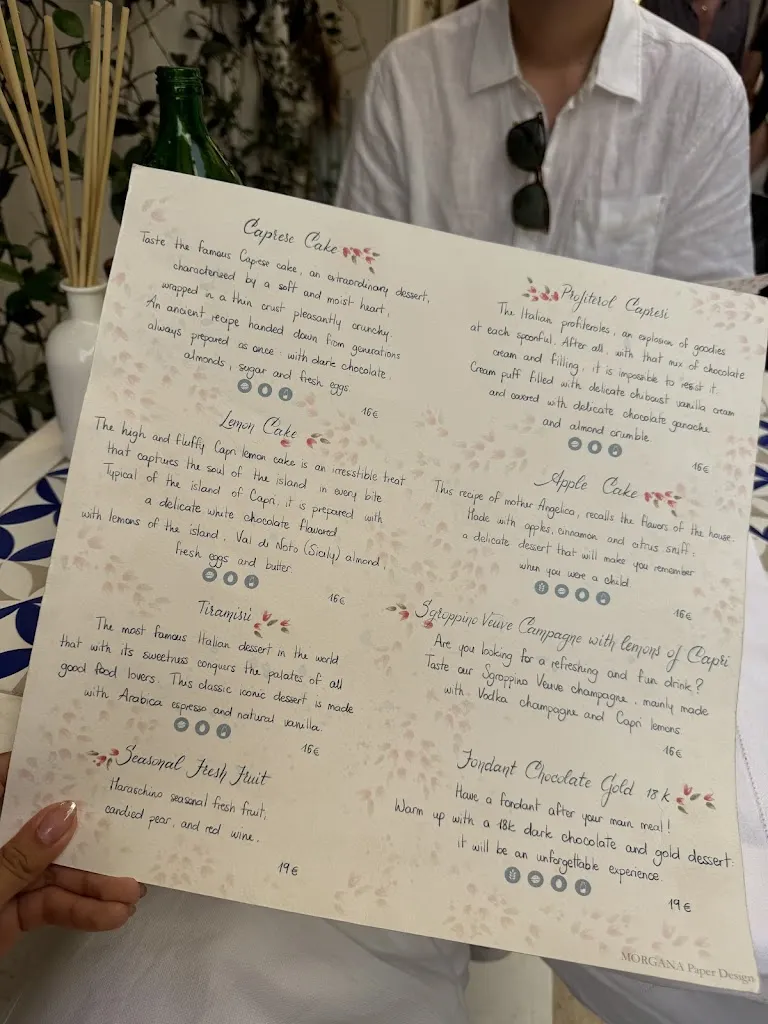 Caprese Cake
Taste the famous Capese cake, an extraordinary dessert,
characterized by a soft and moist heart,
wrapped in a thin crust pleasantly crunchy.
An ancient recipe handed down from generations
always prepared as once: with dark chocolate,
almonds, sugar and fresh eggs.
16€
Lemon Cake
The high and fluffy Capri lemon cake is an irresistible treat
that captures the soul of the island in every bite
Typical of the island of Capri, it is prepared with
a delicate white chocolate flavored
with lemons of the island, Val di Noto (Sicily) almond,
fresh eggs and butter
16€
Tiramisù
The most famous Italian dessert in the world
that with its sweetness conquers the palates of all
good food lovers. This classic iconic dessert is made
with Arabica espresso and natural vanilla.
16€
Seasonal Fresh Fruit
Maraschino seasonal fresh fruit,
candied pear, and red wine.
19€
Profiterol Capresi
The Italian profiteroles, an explosion of goodies
at each spoonful. After all, with that mix of chocolate
cream and filling, it is impossible to resist it.
Cream puff filled with delicate chiboust vanilla cream
and covered with delicate chocolate ganache
and almond crumble
16€
Apple Cake
This recipe of mother Angelica, recalls the flavors of the house.
Made with apples, cinnamon and citrus sniff:
a delicate dessert that will make you remember
when you were a child.
16€
Sgroppino Veuve Campagne with lemons of Capri
Are you looking for a refreshing and fun drink?
Taste our Sgroppino Veuve champagne, mainly made
with Vodka champagne and Capri lemons
16€
Fondant Chocolate Gold 18 k
Have a fondant after your main meal!
Warm up with a 18k dark chocolate and gold dessert:
it will be an unforgettable experience.
19€
MORGANA Paper Design